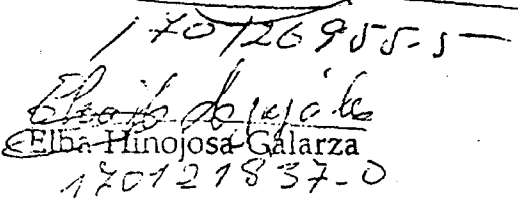 170126955-5
Elba Hinojosa Galarza
170121837-0